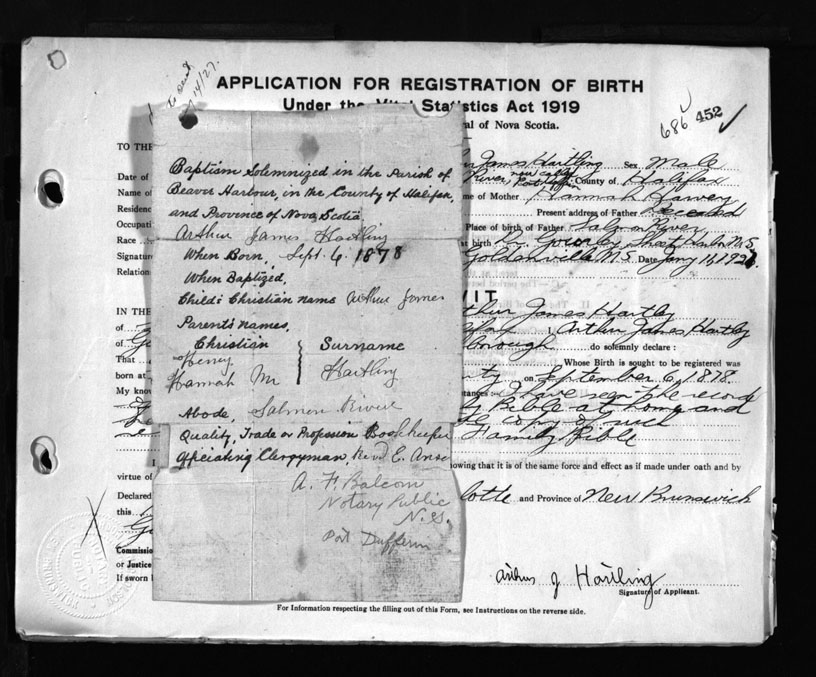 APPLICATION FOR REGISTRATION OF BIRTH
Under the Vital Statistics Act 1919
al of Nova Scotia.
686 452
TO THE
Date of
Name of
Residen
Occupati
Race
Signatur
Relation
James Hartling Sex Male
River, now called Port Dufferin County of Halifax
me of Mother Hannah Harvey
Present address of Father Deceased
Place of birth of Father Salmon River
at birth Dr. N.S.
Goldenville N.S. Date Jany 11, 192
VIT
IN THE
of
of
That
born at
My know
thur James Hartley
I, Arthur James Hartley
do solemnly declare :
Whose Birth is sought to be registered was
ty on September 6, 1878.
I have seen the record
Bible at home and
copy of such
Family Bible
I
virtue of
Declared
this
nowing that it is of the same force and effect as if made under oath and by
lotte and Province of New Brunswick
Commissio
or Justice
If sworn
Arthur J Hartling
Signature of Applicant.
For Information respecting the filling out of this Form, see Instructions on the reverse side.
Baptism Solemnized in the Parish of
Beaver Harbour, in the County of Halifax,
and Province of Nova Scotia.
Arthur James Hartling
When Born, Sept. 6. 1878
When Baptized,
Child's Christian name Arthur James
Parent's names,
Christian } Surname
Henry
Hannah M Hartling
Abode, Salmon River
Quality, Trade or Profession Bookkeeper
Officiating Clergyman, Revd E. Ans
A. F. Balcom
Notary Public
N.S.
Port Dufferin